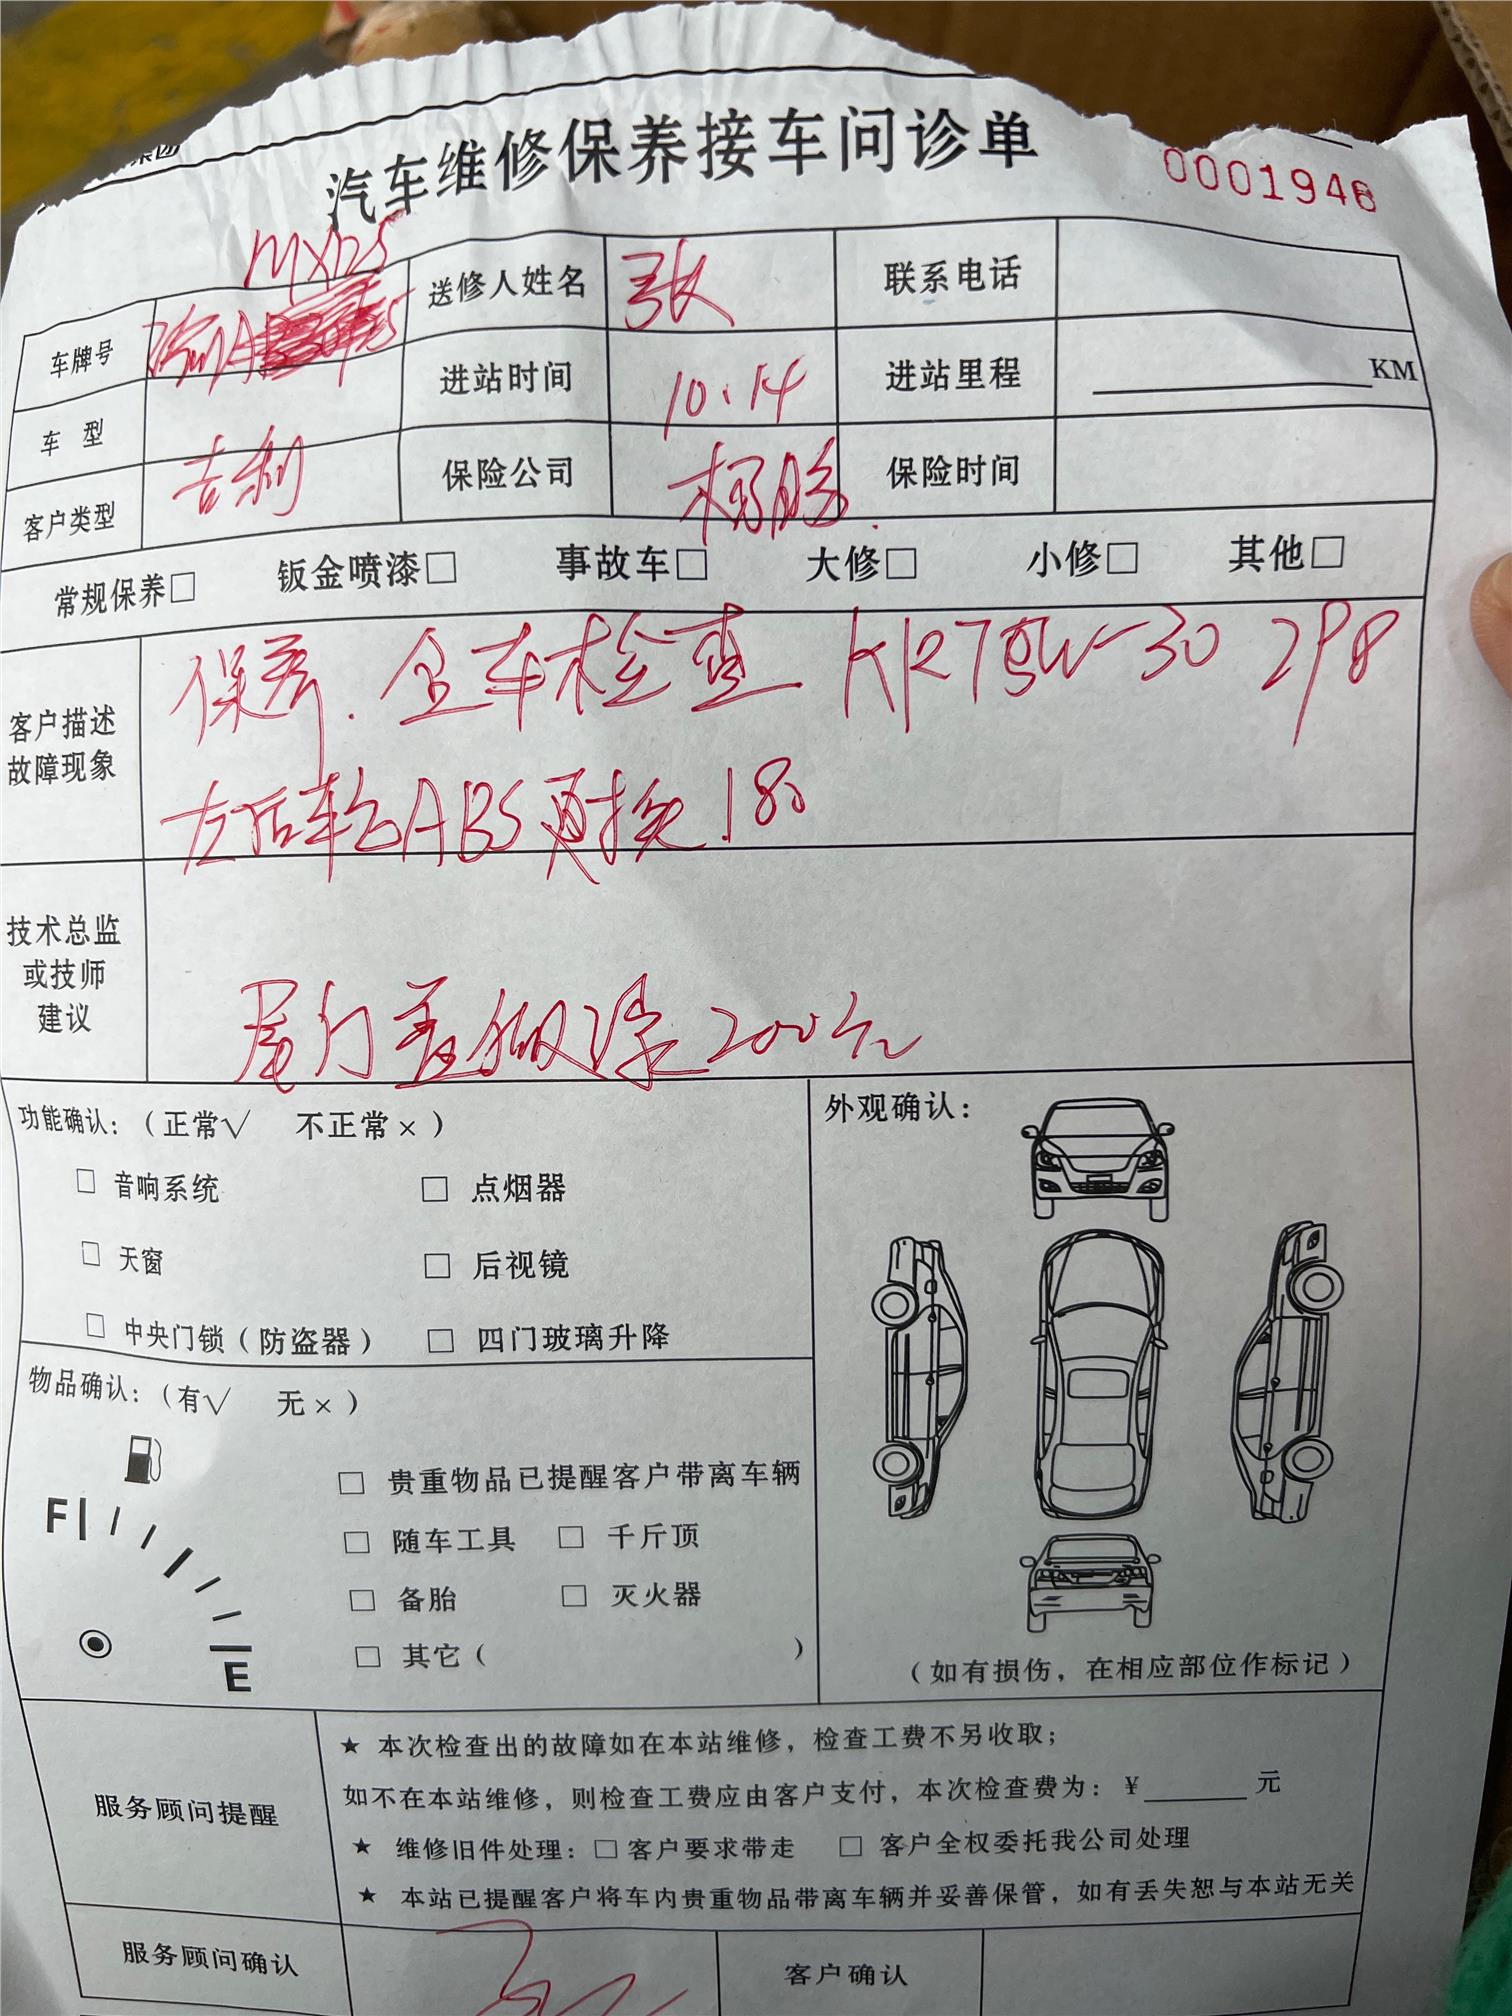 集团
汽车维修保养接车问诊单
0001946
车牌号
送修人姓名 张 联系电话
进站时间 10.14 进站里程 KM
车型 吉利
保险公司 杨 保险时间
客户类型
常规保养□ 钣金喷漆□ 事故车□ 大修□ 小修□ 其他□
客户描述
故障现象
保养.全车检查 5W-30 298
左后轮ABS更换 180
技术总监
或技师
建议
尾门盖做漆200元
功能确认：（正常√ 不正常×）
□ 音响系统 □ 点烟器
□ 天窗 □ 后视镜
□ 中央门锁（防盗器） □ 四门玻璃升降
外观确认：
（如有损伤，在相应部位作标记）
物品确认：（有√ 无×）
F
E
□ 贵重物品已提醒客户带离车辆
□ 随车工具 □ 千斤顶
□ 备胎 □ 灭火器
□ 其它（ ）
服务顾问提醒
★ 本次检查出的故障如在本站维修，检查工费不另收取；
如不在本站维修，则检查工费应由客户支付，本次检查费为：￥______元
★ 维修旧件处理：□客户要求带走 □ 客户全权委托我公司处理
★ 本站已提醒客户将车内贵重物品带离车辆并妥善保管，如有丢失恕与本站无关
服务顾问确认 客户确认